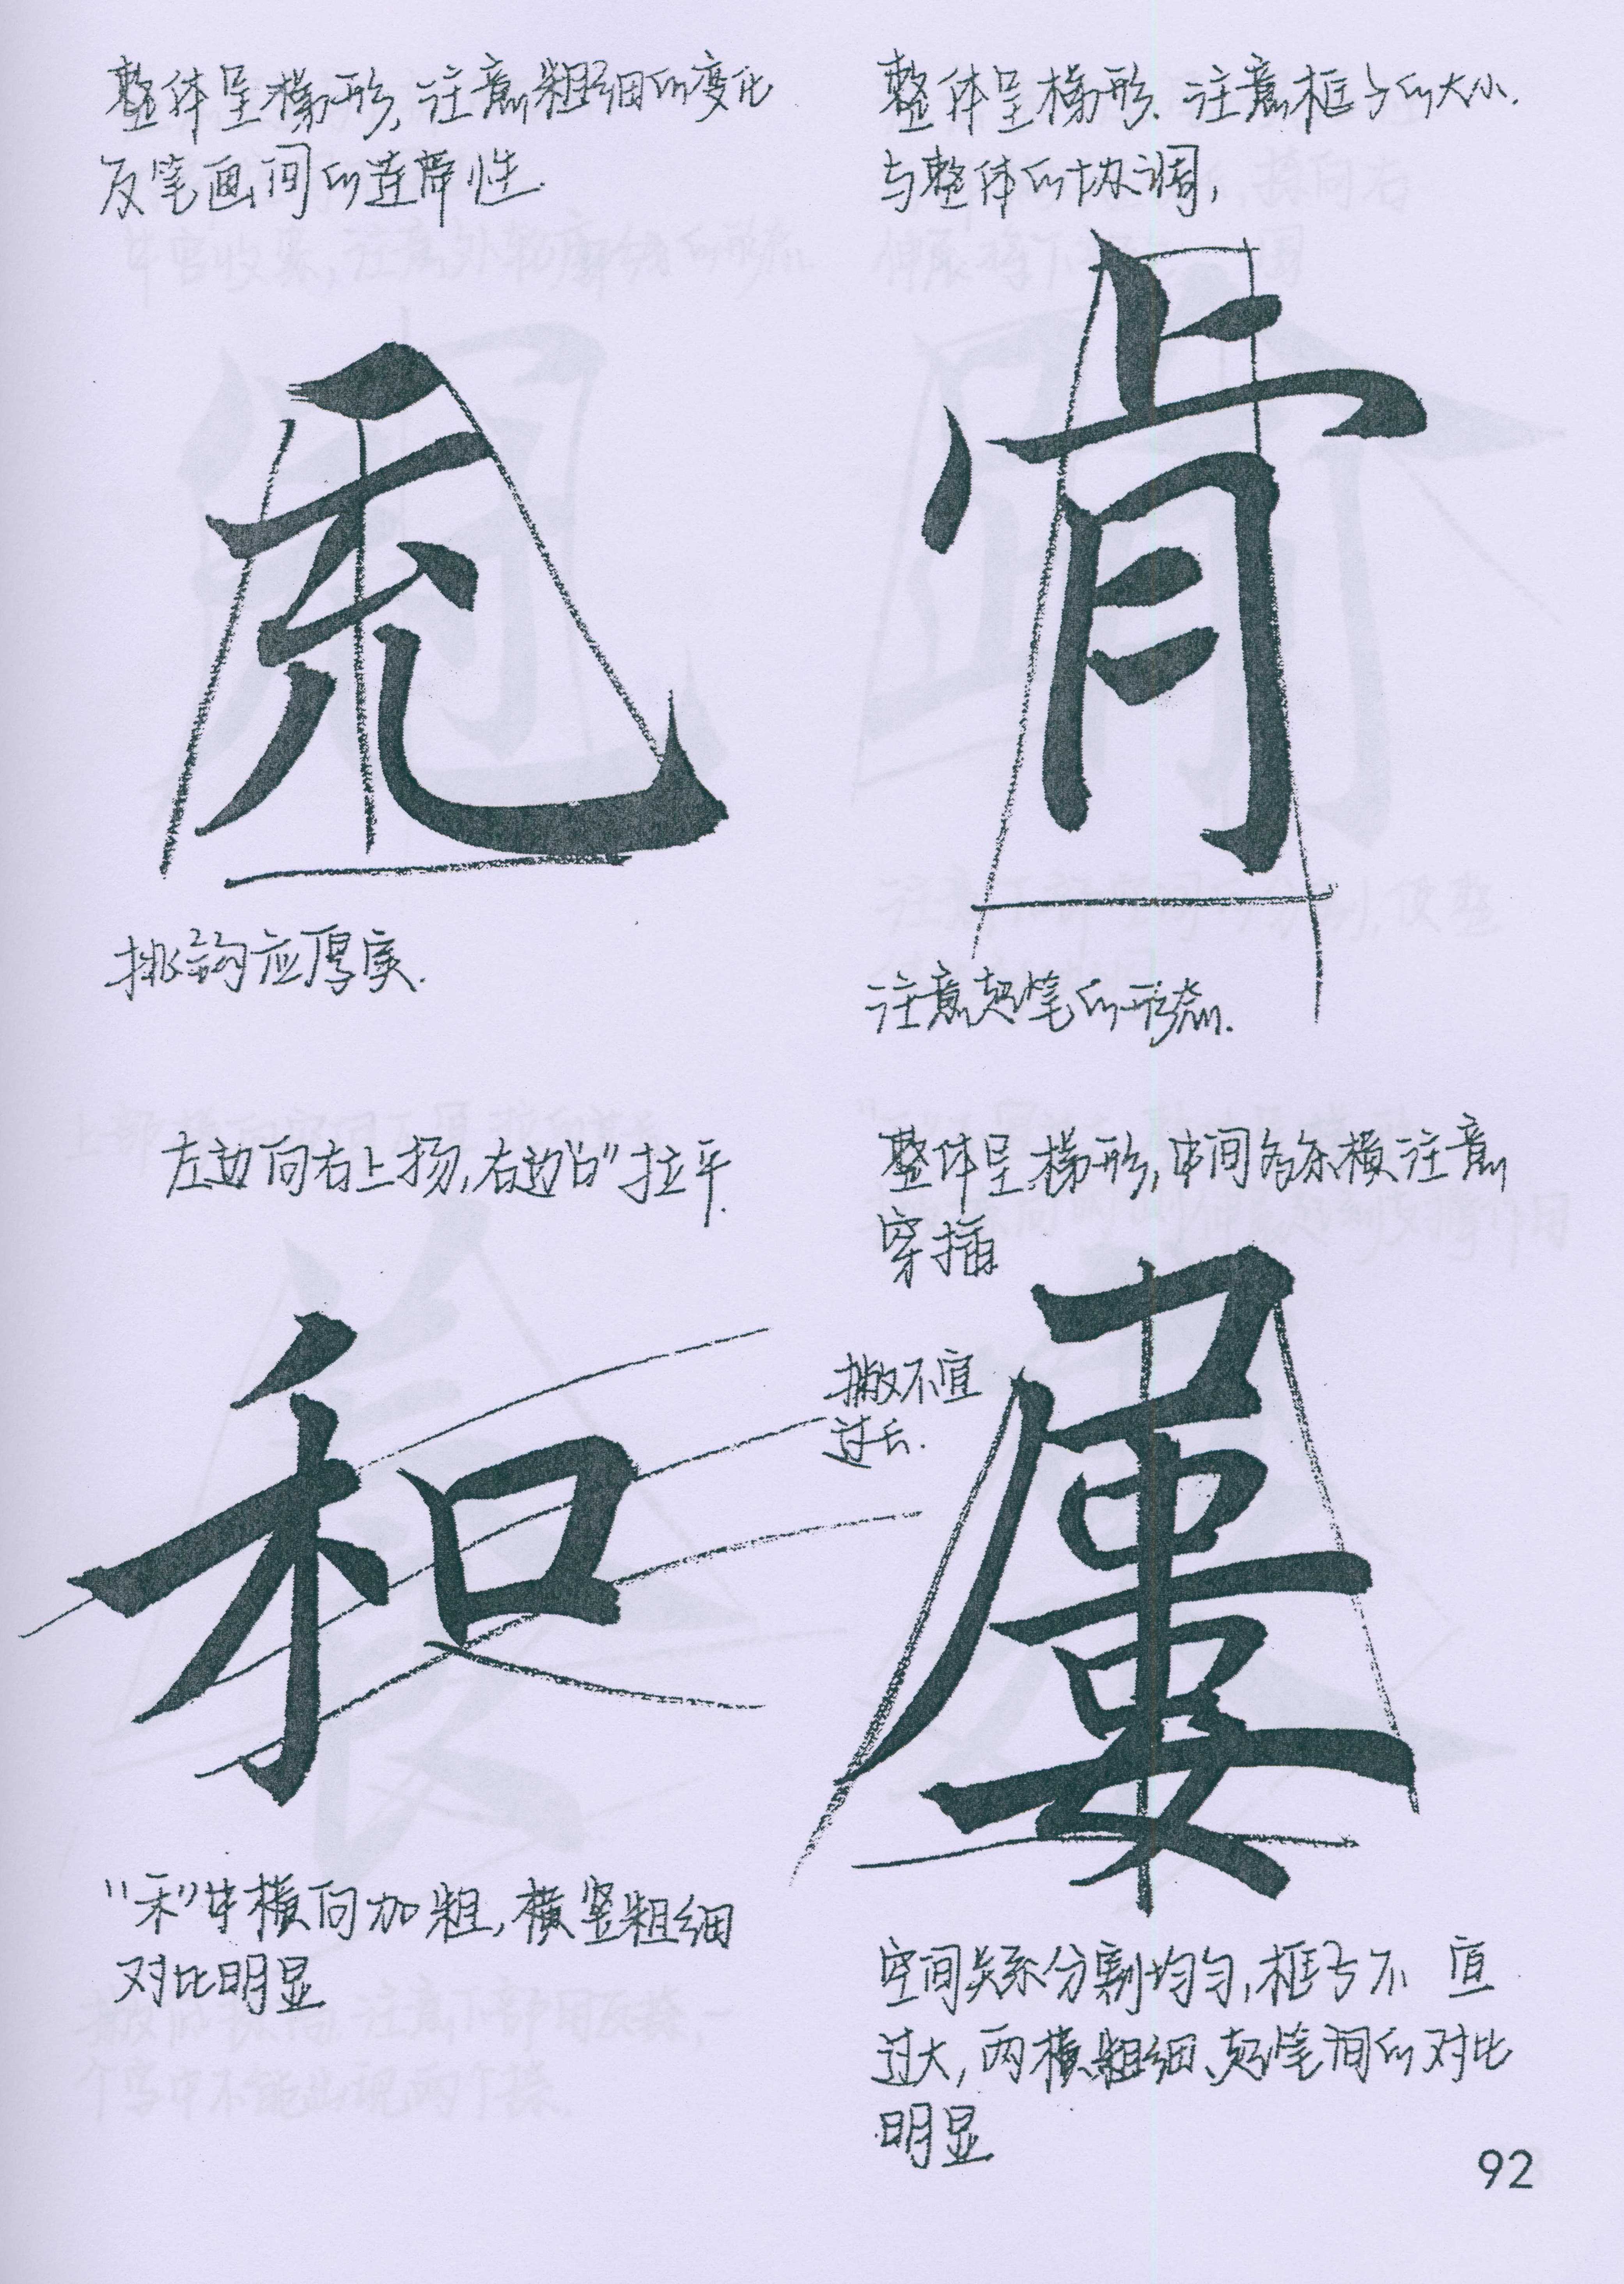 整体呈梯形,注意粗细的变化
及笔画间的连带性.
充
挑钩应厚实.
整体呈梯形.注意框子的大小.
与整体的协调,
肯
注意起笔的形态.
左边向右上扬,右边"口"拉平.
和
"禾"中横向加粗,横竖粗细
对比明显
整体呈梯形,中间多条横注意
穿插
撇不宜
过长.
屢
空间关系分割均匀,框子不宜
过大,两横粗细、起笔间的对比
明显
92